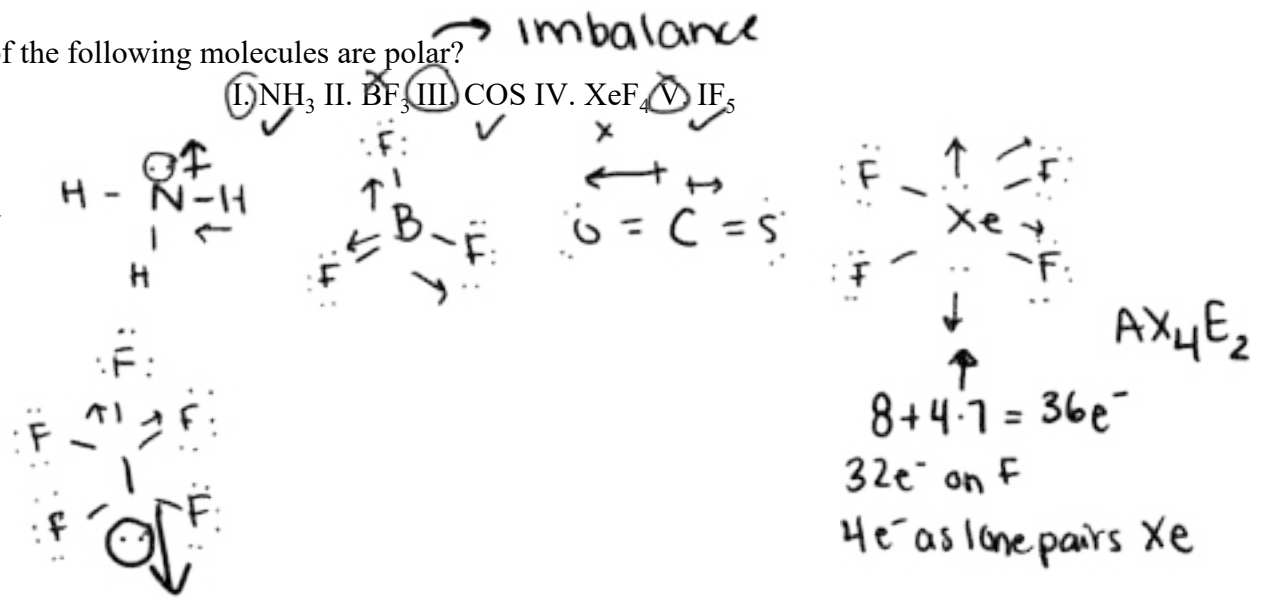 imbalance
f the following molecules are polar?
I. NH₃ II. BF₃ III. COS IV. XeF₄ V. IF₅
H - N - H
H
F
B
F F
O = C = S
F F
Xe
F F
AX₄E₂
8 + 4·7 = 36e⁻
32e⁻ on F
4e⁻ as lone pairs Xe
F
F F
F F